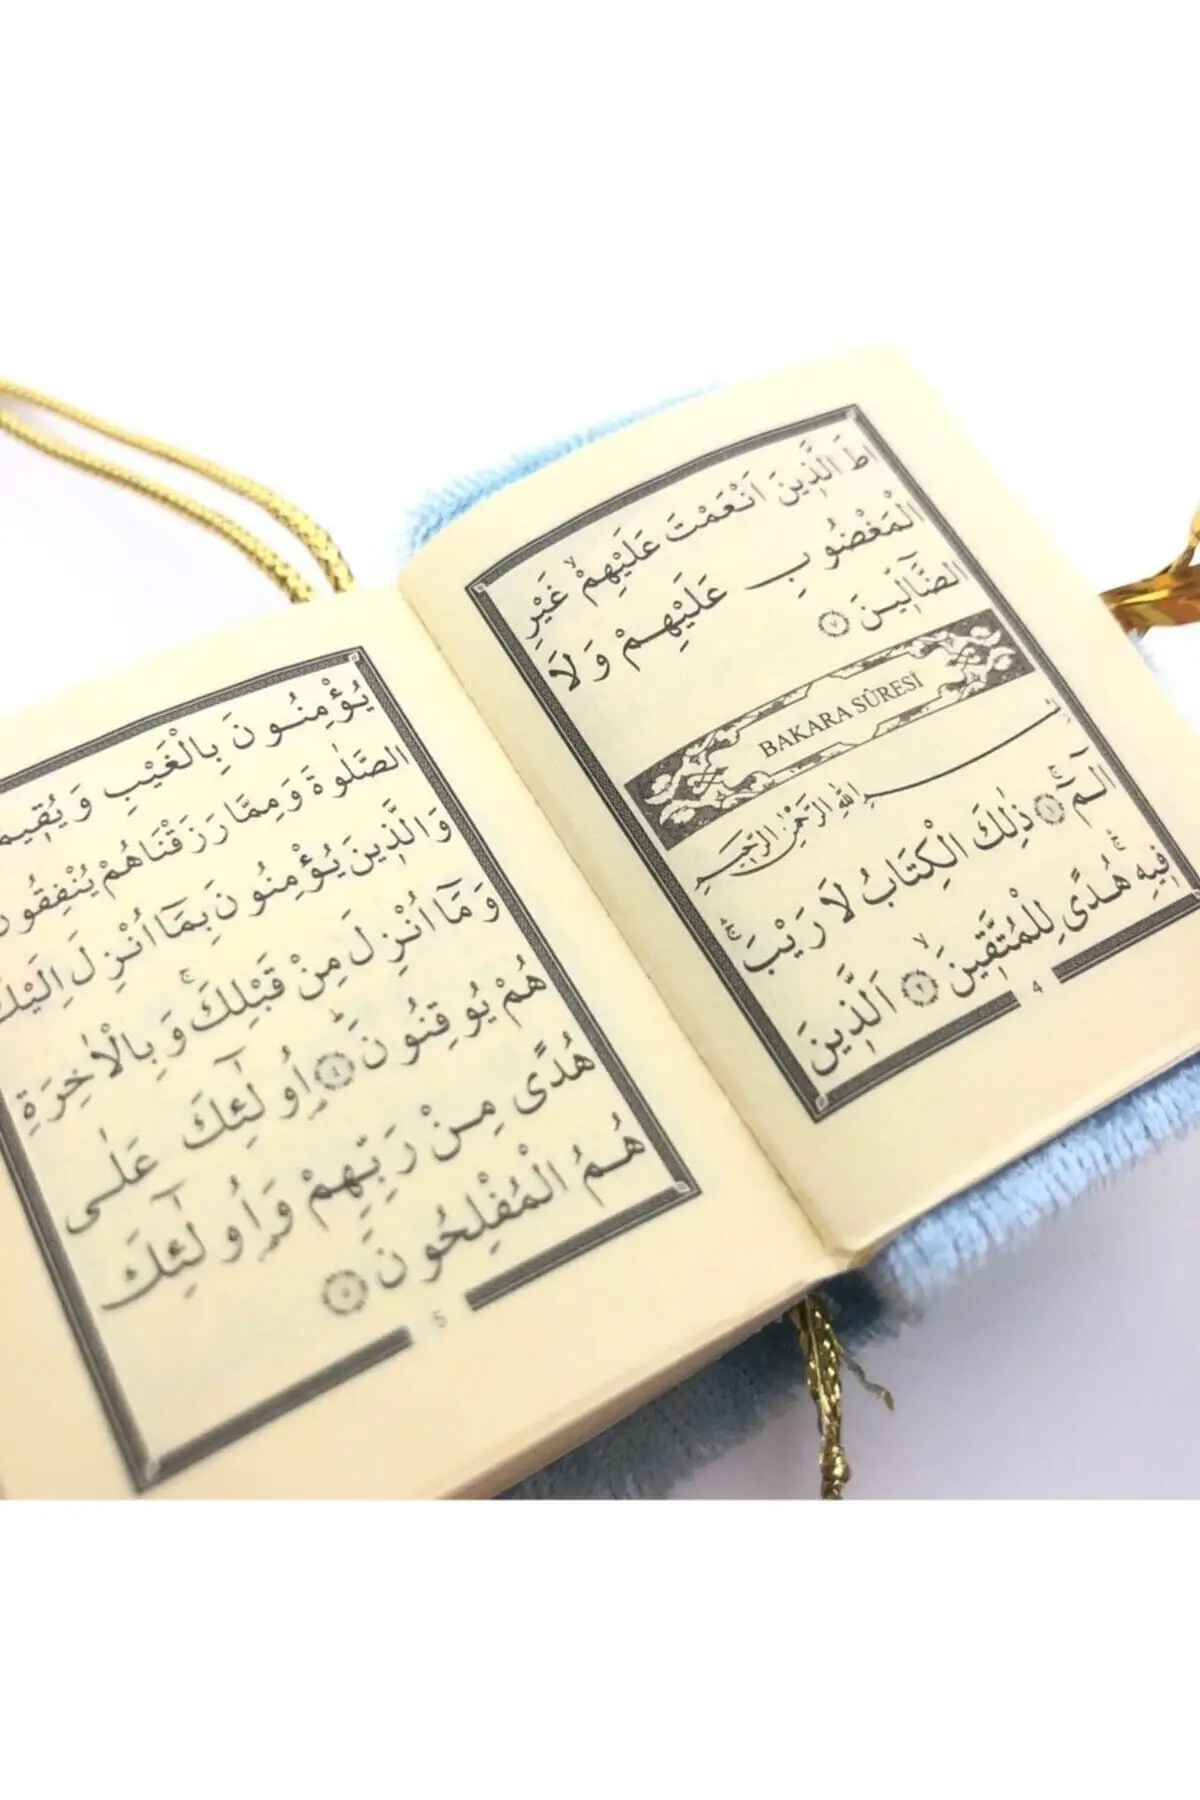 اطَ الَّذِينَ اَنْعَمْتَ عَلَيْهِمْۙ غَيْرِ
الْمَغْضُوبِ عَلَيْهِمْ وَلَا
الضَّٓالّ۪ينَ ﴿٧﴾
BAKARA SÛRESİ
بِسْمِ اللهِ الرَّحْمٰنِ الرَّحِيمِ
الٓمٓۚ ﴿١﴾ ذٰلِكَ الْكِتَابُ لَا رَيْبَۚۛ
ف۪يهِۚۛ هُدًى لِلْمُتَّق۪ينَۙ ﴿٢﴾ اَلَّذ۪ينَ
4
يُؤْمِنُونَ بِالْغَيْبِ وَيُق۪يم
الصَّلٰوةَ وَمِمَّا رَزَقْنَاهُمْ يُنْفِقُون
وَالَّذ۪ينَ يُؤْمِنُونَ بِمَٓا اُنْزِلَ اِلَيْكَ
وَمَٓا اُنْزِلَ مِنْ قَبْلِكَۚ وَبِالْاٰخِرَةِ
هُمْ يُوقِنُونَۜ ﴿٤﴾ اُو۬لٰٓئِكَ عَلٰى
هُدًى مِنْ رَبِّهِمْ وَاُو۬لٰٓئِكَ
هُمُ الْمُفْلِحُونَ ﴿٥﴾
5